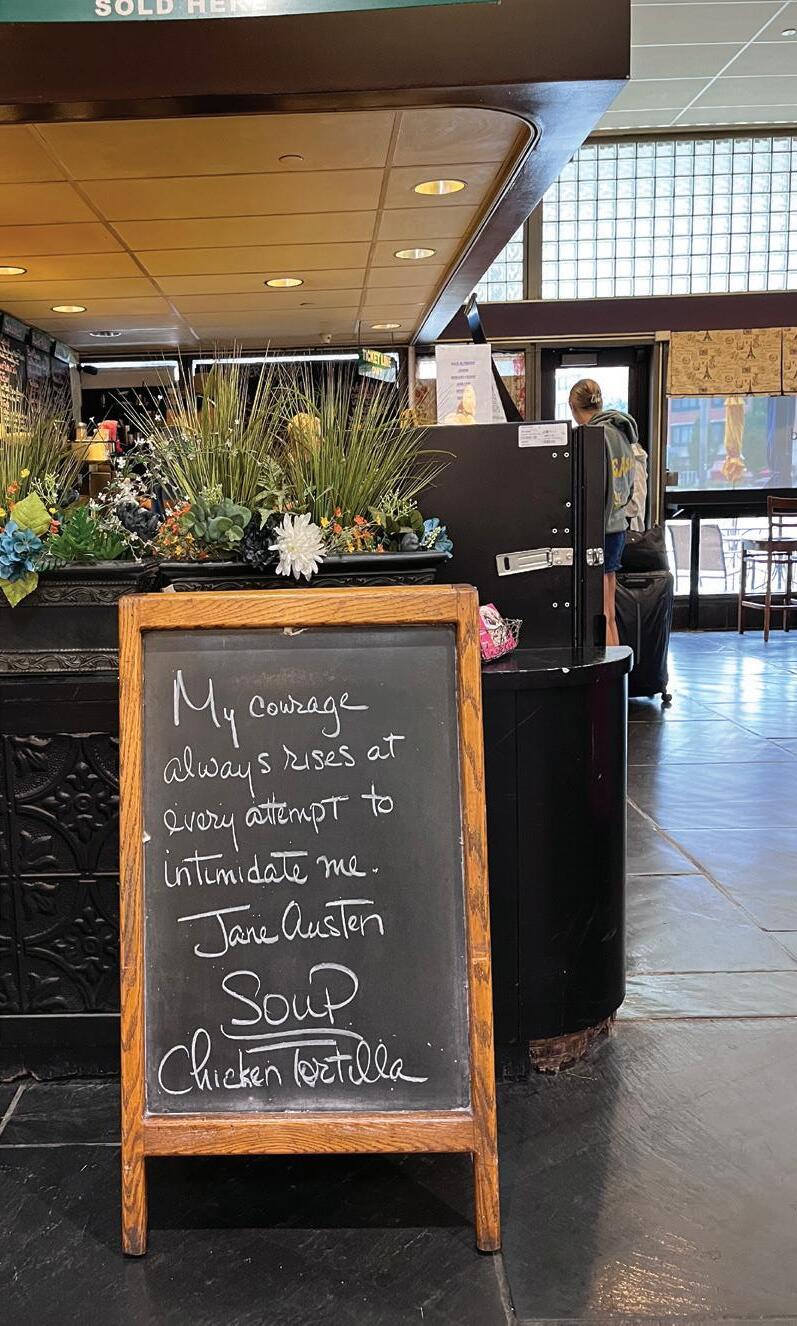 SOLD HERE
TICKET LINE
My courage
always rises at
every attempt to
intimidate me.
Jane Austen
Soup
Chicken Tortilla